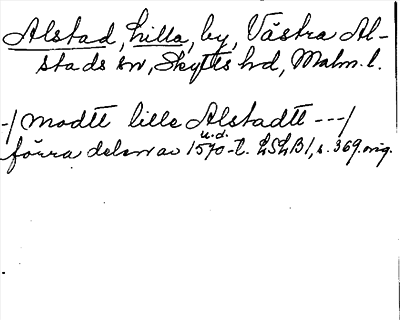 Alstad, Lilla, by, Västra Al-
stads sn, Skytts hd, Malm. l.
-/ modtt lille Alstadtt ---/
u.d.
förra delen av 1570-t. LSLB1, s. 369. orig.